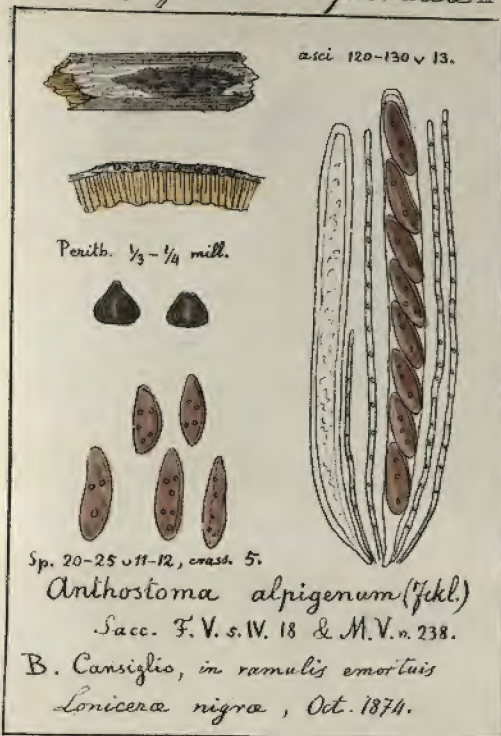 asci 120-130 v 13.
Perith. 1/3-1/4 mill.
Sp. 20-25 v 11-12, crass. 5.
Anthostoma alpigenum (Fckl.)
Sacc. F. V. s. IV. 18 & M.V. n. 238.
B. Cansiglio, in ramulis emortuis
Loniceræ nigræ, Oct. 1874.